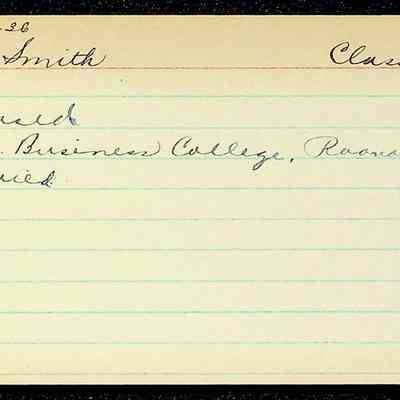 -36
Smith Clas
ased
. Business College, Roano
ried.